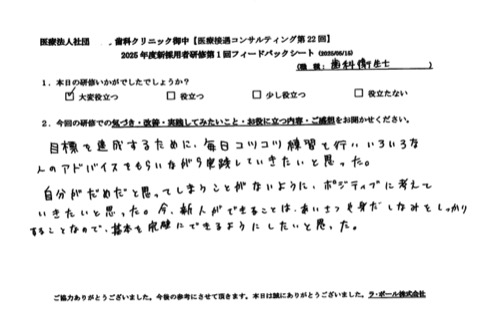 医療法人社団 歯科クリニック御中【医療接遇コンサルティング第22回】
2025年度新採用者研修第1回フィードバックシート (2025/05/15)
(職種: 歯科衛生士 )
1．本日の研修いかがでしたでしょうか？
☑ 大変役立つ □ 役立つ □ 少し役立つ □ 役立たない
2．今回の研修での気づき・改善・実践してみたいこと・お役に立つ内容・ご感想をお聞かせください。
目標を達成するために、毎日コツコツ練習を行い、いろいろな
人のアドバイスをもらいながら実践していきたいと思った。
自分がだめだと思ってしまうことがないように、ポジティブに考えて
いきたいと思った。今、新人ができることは、あいさつや身だしなみをしっかり
することなので、基本を完璧にできるようにしたいと思った。
ご協力ありがとうございました。今後の参考にさせて頂きます。本日は誠にありがとうございました。ラ・ポール株式会社